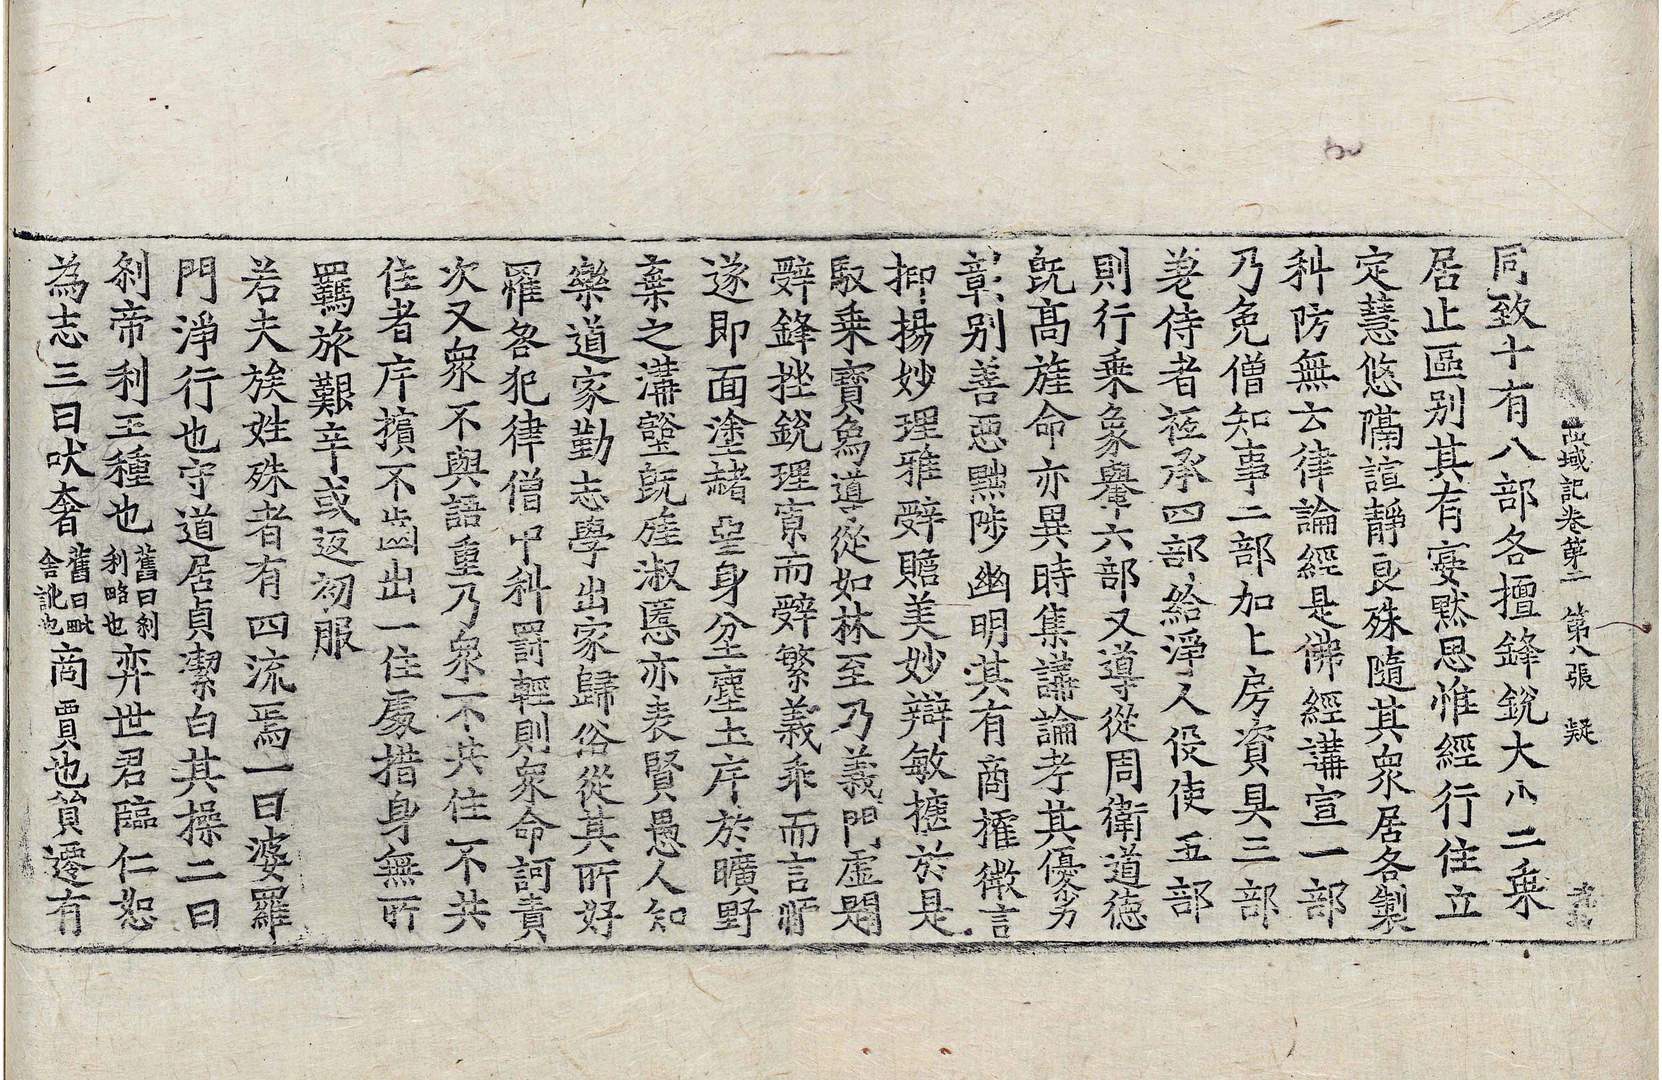 西域記卷第二 第八張 疑
同致十有八部各擅鋒銳大小二乘
居止區别其有宴默思惟經行住立
定慧悠隔諠靜良殊隨其衆居各製
科防無云律論經是佛經講宣一部
乃免僧知事二部加上房資具三部
差侍者祗承四部給淨人役使五部
則行乘象轝六部又導從周衛道德
旣高旌命亦異時集講論考其優劣
彰别善惡黜陟幽明其有商搉微言
抑揚妙理雅辝贍美妙辯敏捷於是
馭乘寶象導從如林至乃義門虛闢
辝鋒挫銳理寡而辝繁義乖而言順
遂即面塗赭堊身坌塵土斥於曠野
棄之溝壑旣旌淑慝亦表賢愚人知
樂道家勤志學出家歸俗從其所好
罹咎犯律僧中科罰輕則衆命訶責
次又衆不與語重乃衆不共住不共
住者斥擯不齒出一住處措身無所
羈旅艱辛或返初服
若夫族姓殊者有四流焉一曰婆羅
門淨行也守道居貞潔白其操二曰
刹帝利王種也舊曰刹利略也弈世君臨仁恕
為志三曰吠奢舊曰毗舍訛也商賈也貿遷有